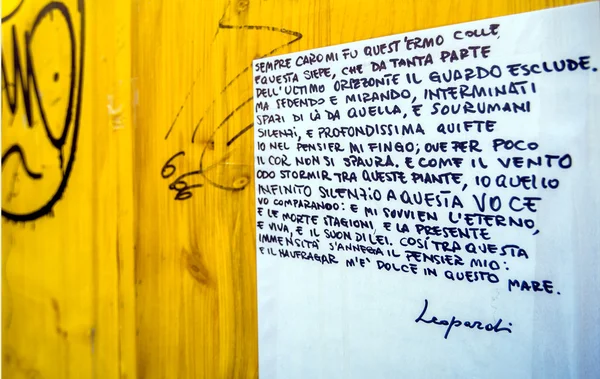 SEMPRE CARO MI FU QUEST'ERMO COLLE,
E QUESTA SIEPE, CHE DA TANTA PARTE
DELL'ULTIMO ORIZZONTE IL GUARDO ESCLUDE.
MA SEDENDO E MIRANDO, INTERMINATI
SPAZI DI LÀ DA QUELLA, E SOVRUMANI
SILENZI, E PROFONDISSIMA QUIETE
IO NEL PENSIER MI FINGO; OVE PER POCO
IL COR NON SI SPAURA. E COME IL VENTO
ODO STORMIR TRA QUESTE PIANTE, IO QUELLO
INFINITO SILENZIO A QUESTA VOCE
VO COMPARANDO: E MI SOVVIEN L'ETERNO,
E LE MORTE STAGIONI, E LA PRESENTE
E VIVA, E IL SUON DI LEI. COSÍ TRA QUESTA
IMMENSITÀ S'ANNEGA IL PENSIER MIO:
E IL NAUFRAGAR M'È DOLCE IN QUESTO MARE.
Leopardi
666